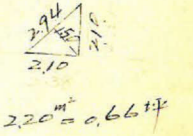 2.94
2.10
2.10
2.20m²=0.66坪